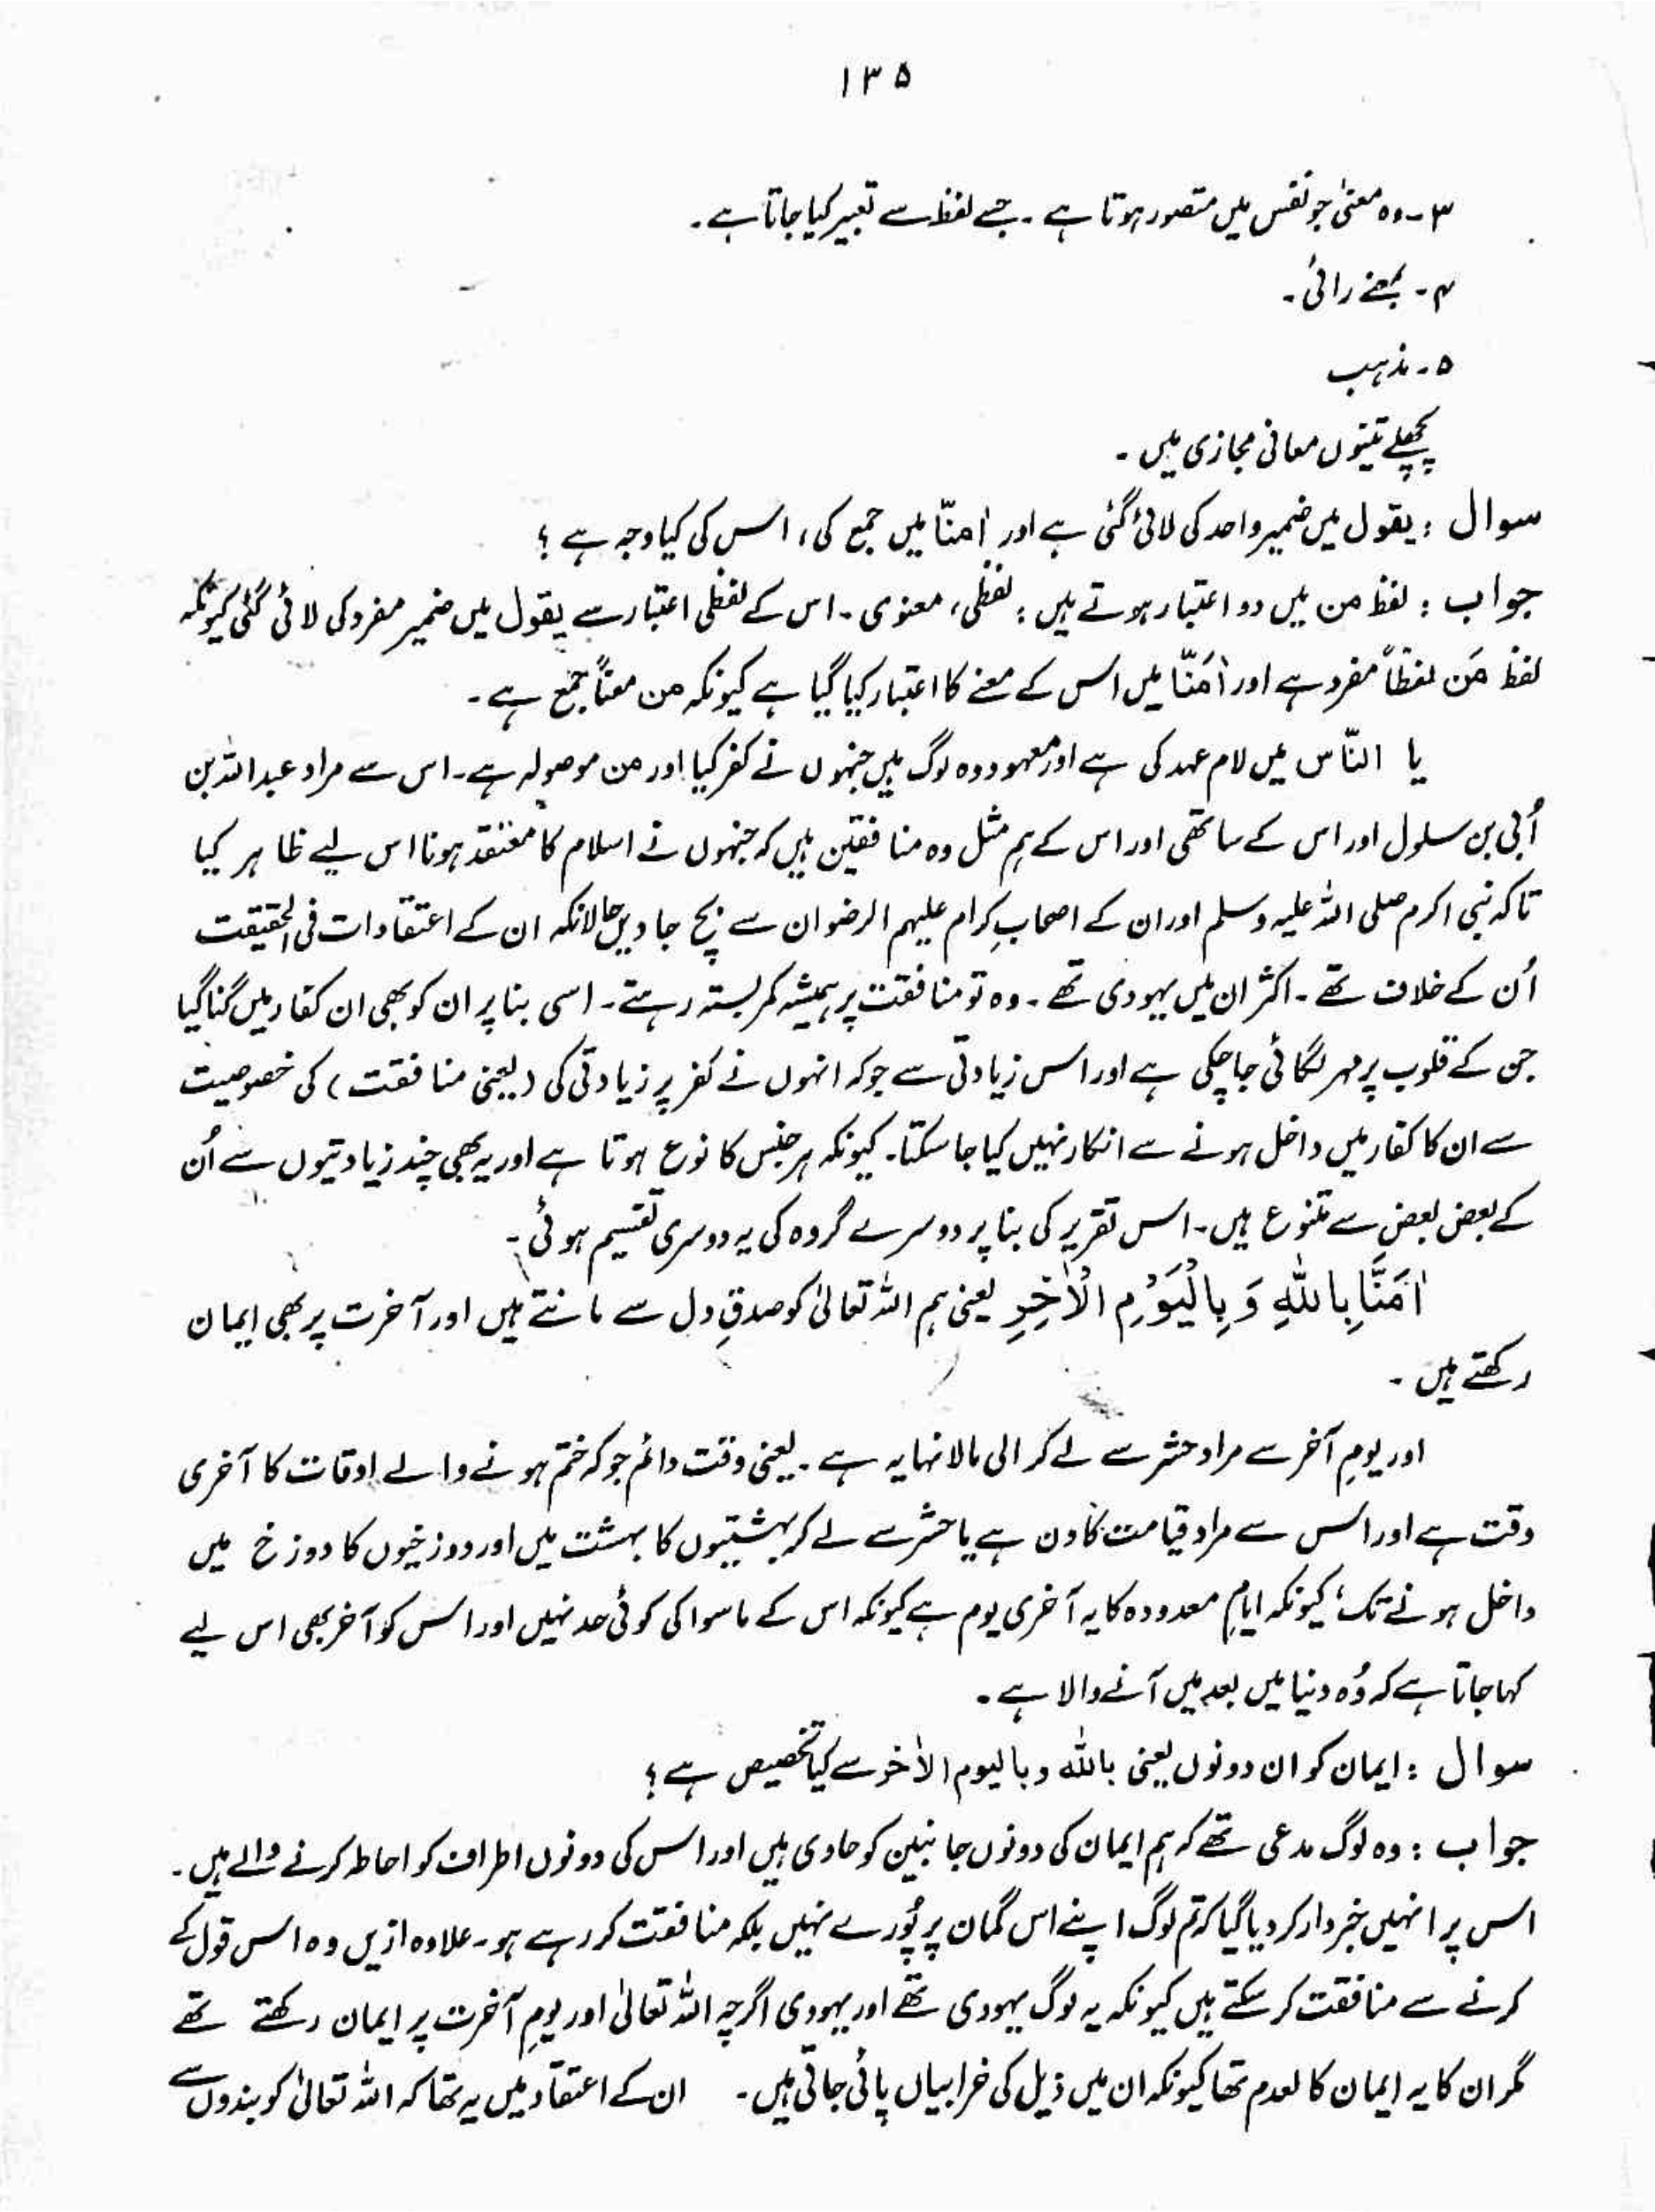 ۱۳۵
۳۔ وہ معنیٰ جو نفس میں متصور ہوتا ہے ۔ جسے لفظ سے تعبیر کیا جاتا ہے ۔
۴ ۔ بمعنے رائی ۔
۵ ۔ مذہب
پچھلے تینوں معانی مجازی ہیں ۔
سوال : یقول میں ضمیر واحد کی لائی گئی ہے اور اٰمنّا میں جمع کی ، اس کی کیا وجہ ہے ؟
جواب : لفظ من میں دو اعتبار ہوتے ہیں : لفظی ، معنوی ۔ اس کے لفظی اعتبار سے یقول میں ضمیر مفرد کی لائی گئی کیونکہ
لفظ مَن لفظاً مفرد ہے اور اٰمَنّا میں اس کے معنے کا اعتبار کیا گیا ہے کیونکہ من معناً جمع ہے ۔
یا النّاس میں لام عہد کی ہے اور معہود وہ لوگ ہیں جنہوں نے کفر کیا اور من موصولہ ہے ۔ اس سے مراد عبداللہ بن
اُبی بن سلول اور اس کے ساتھی اور اس کے ہم مثل وہ منافقین ہیں کہ جنہوں نے اسلام کا معتقد ہونا اس لیے ظاہر کیا
تاکہ نبی اکرم صلی اللہ علیہ وسلم اور ان کے اصحابِ کرام علیہم الرضوان سے بچ جاویں حالانکہ ان کے اعتقادات فی الحقیقت
اُن کے خلاف تھے ۔ اکثر ان میں یہودی تھے ۔ وہ تو منافقت پر ہمیشہ کمربستہ رہتے ۔ اسی بنا پر ان کو بھی ان کفار میں گنا گیا
جن کے قلوب پر مہر لگائی جاچکی ہے اور اس زیادتی سے جو کہ انہوں نے کفر پر زیادتی کی ( یعنی منافقت ) کی خصوصیت
سے ان کا کفار میں داخل ہونے سے انکار نہیں کیا جا سکتا ۔ کیونکہ ہر جنس کا نوع ہوتا ہے اور یہ بھی چند زیادتیوں سے اُن
کے بعض بعض سے متنوع ہیں ۔ اس تقریر کی بنا پر دوسرے گروہ کی یہ دوسری تقسیم ہوئی ۔
اٰمَنَّا بِاللّٰهِ وَ بِالْیَوْمِ الْاٰخِرِ یعنی ہم اللہ تعالیٰ کو صدقِ دل سے مانتے ہیں اور آخرت پر بھی ایمان
رکھتے ہیں ۔
اور یومِ آخر سے مراد حشر سے لے کر الی مالانہایہ ہے ۔ یعنی وقت دائم جو کہ ختم ہونے والے اوقات کا آخری
وقت ہے اور اس سے مراد قیامت کا دن ہے یا حشر سے لے کر بہشتیوں کا بہشت میں اور دوزخیوں کا دوزخ میں
داخل ہونے تک ؛ کیونکہ ایامِ معدودہ کا یہ آخری یوم ہے کیونکہ اس کے ماسوا کی کوئی حد نہیں اور اس کو آخر بھی اس لیے
کہا جاتا ہے کہ وُہ دنیا میں بعد میں آنے والا ہے ۔
سوال : ایمان کو ان دونوں یعنی باللہ و بالیوم الاٰخر سے کیا تخصیص ہے ؟
جواب : وہ لوگ مدعی تھے کہ ہم ایمان کی دونوں جانبین کو حاوی ہیں اور اس کی دونوں اطراف کو احاطہ کرنے والے ہیں ۔
اس پر انہیں خبردار کر دیا گیا کہ تم لوگ اپنے اس گمان پر پُورے نہیں بلکہ منافقت کر رہے ہو ۔ علاوہ ازیں وہ اس قول کے
کرنے سے منافقت کر سکتے ہیں کیونکہ یہ لوگ یہودی تھے اور یہودی اگرچہ اللہ تعالیٰ اور یومِ آخرت پر ایمان رکھتے تھے
مگر ان کا یہ ایمان کالعدم تھا کیونکہ ان میں ذیل کی خرابیاں پائی جاتی ہیں ۔ ان کے اعتقاد میں یہ تھا کہ اللہ تعالیٰ کو بندوں سے